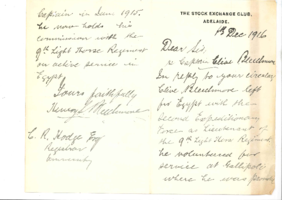 THE STOCK EXCHANGE CLUB,
ADELAIDE.
1st Dec 1916
Dear Sir
Captain Clive
In reply to your circular
Clive left
for Egypt with the
Second Expeditionary
Force as Lieutenant of
the 9th Light Horse Regiment
he volunteered for
service at Gallipoli
where he was
Captain in June 1915.
he now holds his
commission with the
9th Light Horse Regiment
on active service in
Egypt
Yours faithfully
Henry
C. R. Hodge Esq
Registrar
University